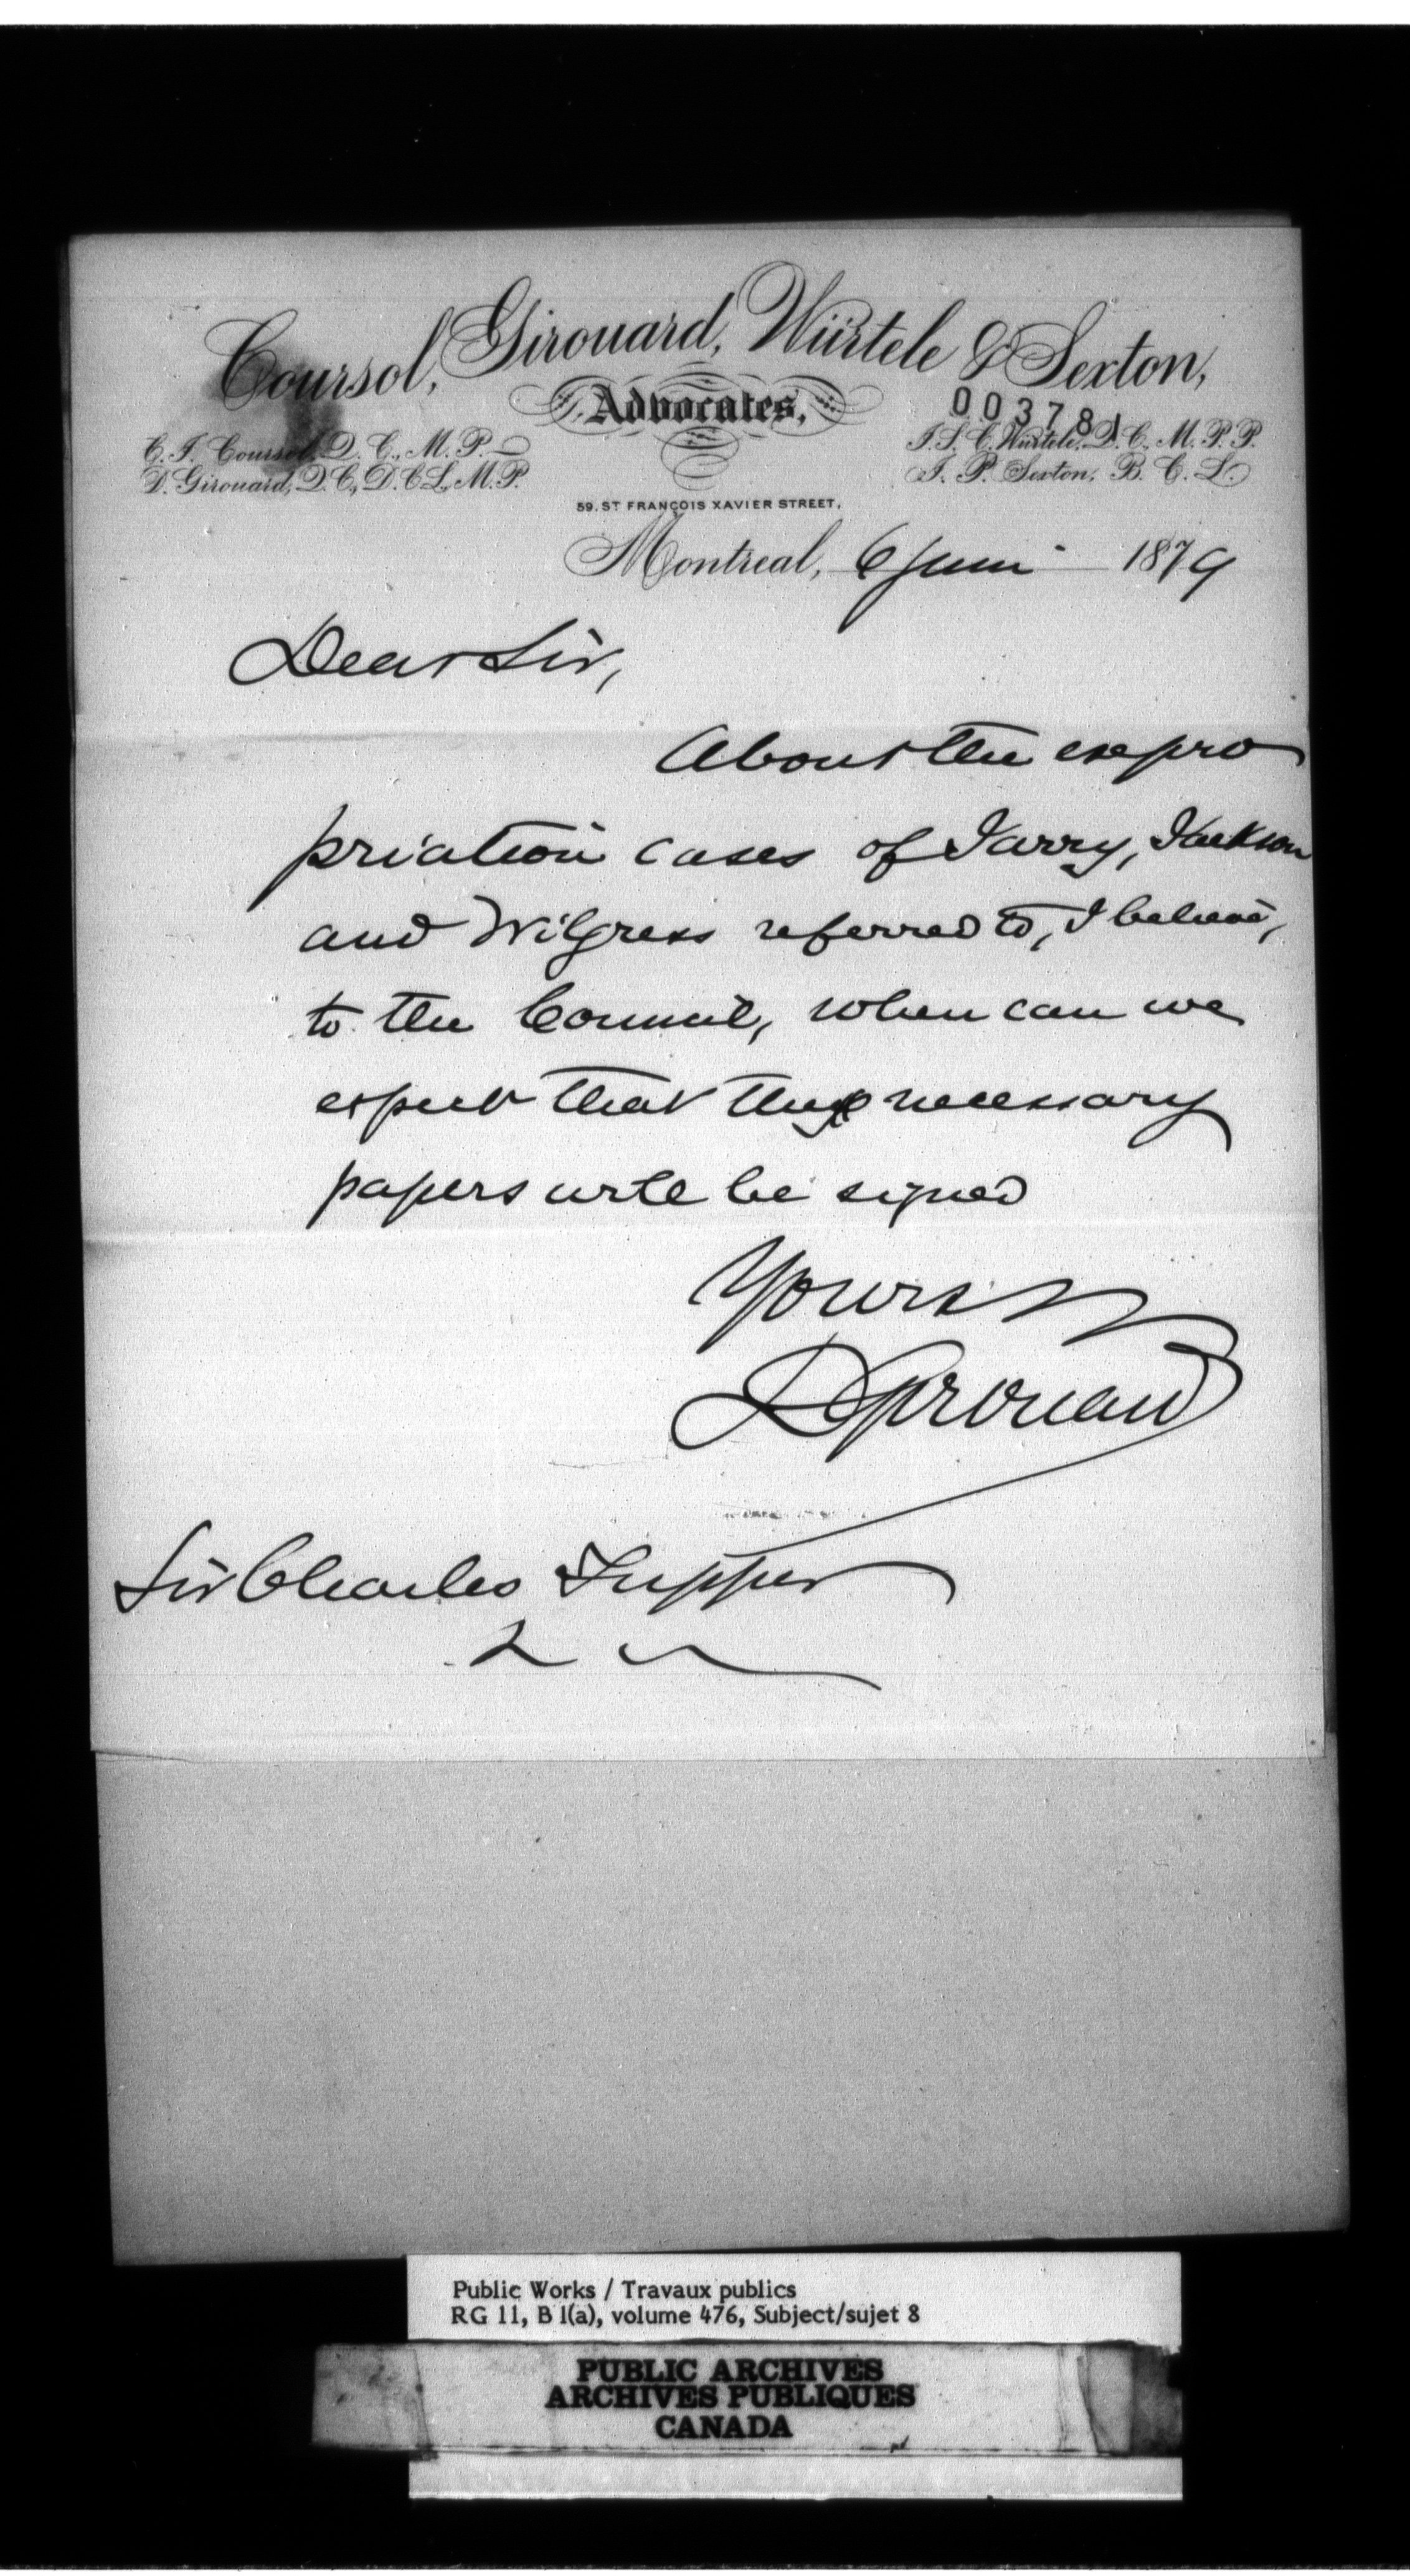 Coursol, Girouard, Würtele & Sexton,
Advocates,
003781
C. J. Coursol, Q. C., M. P.
D. Girouard, Q. C., D. C. L., M. P.
J. S. C. Würtele, Q. C. M. P. P.
J. P. Sexton, B. C. L.
59. ST FRANÇOIS XAVIER STREET.
Montreal, 6 June 1879
Dear Sir,
About the expro
priation cases of Jarry, Jackson
and Wilgress referred to, I believe,
to the Council, when can we
expect that the necessary
papers will be signed
Yours
D Girouard
Sir Charles Tupper
Public Works / Travaux publics
RG 11, B 1(a), volume 476, Subject/sujet 8
PUBLIC ARCHIVES
ARCHIVES PUBLIQUES
CANADA